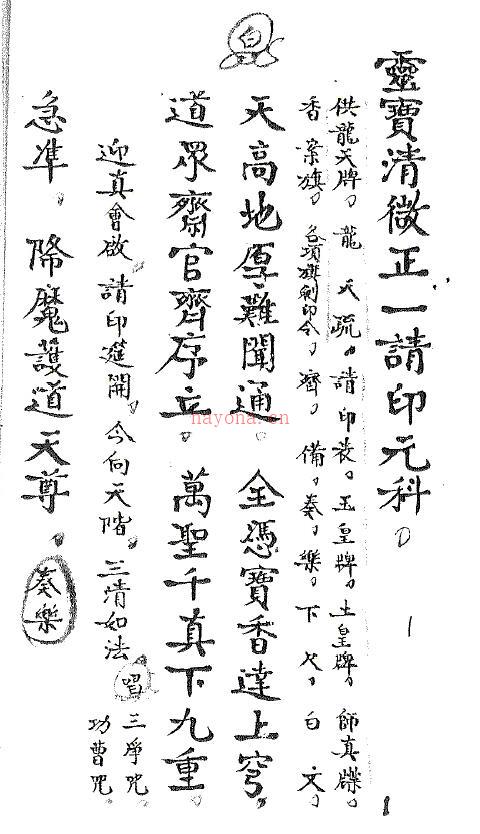 靈寶清微正一請印元科。
供龍天牌。龍天疏。請印表。玉皇牌。土皇牌。師真牒。
香案旗。各項旗劍印令。齊。備。奏。樂。下。欠。白文。
白
天高地厚難聞通。全憑寶香達上穹。
道眾齋官齊序立。萬聖千真下九重。
迎真會啟請印筵開。今向天階。三清如法
唱
三淨咒。
功曹咒。
急準。降魔護道天尊。
奏樂
1
hayona.cn